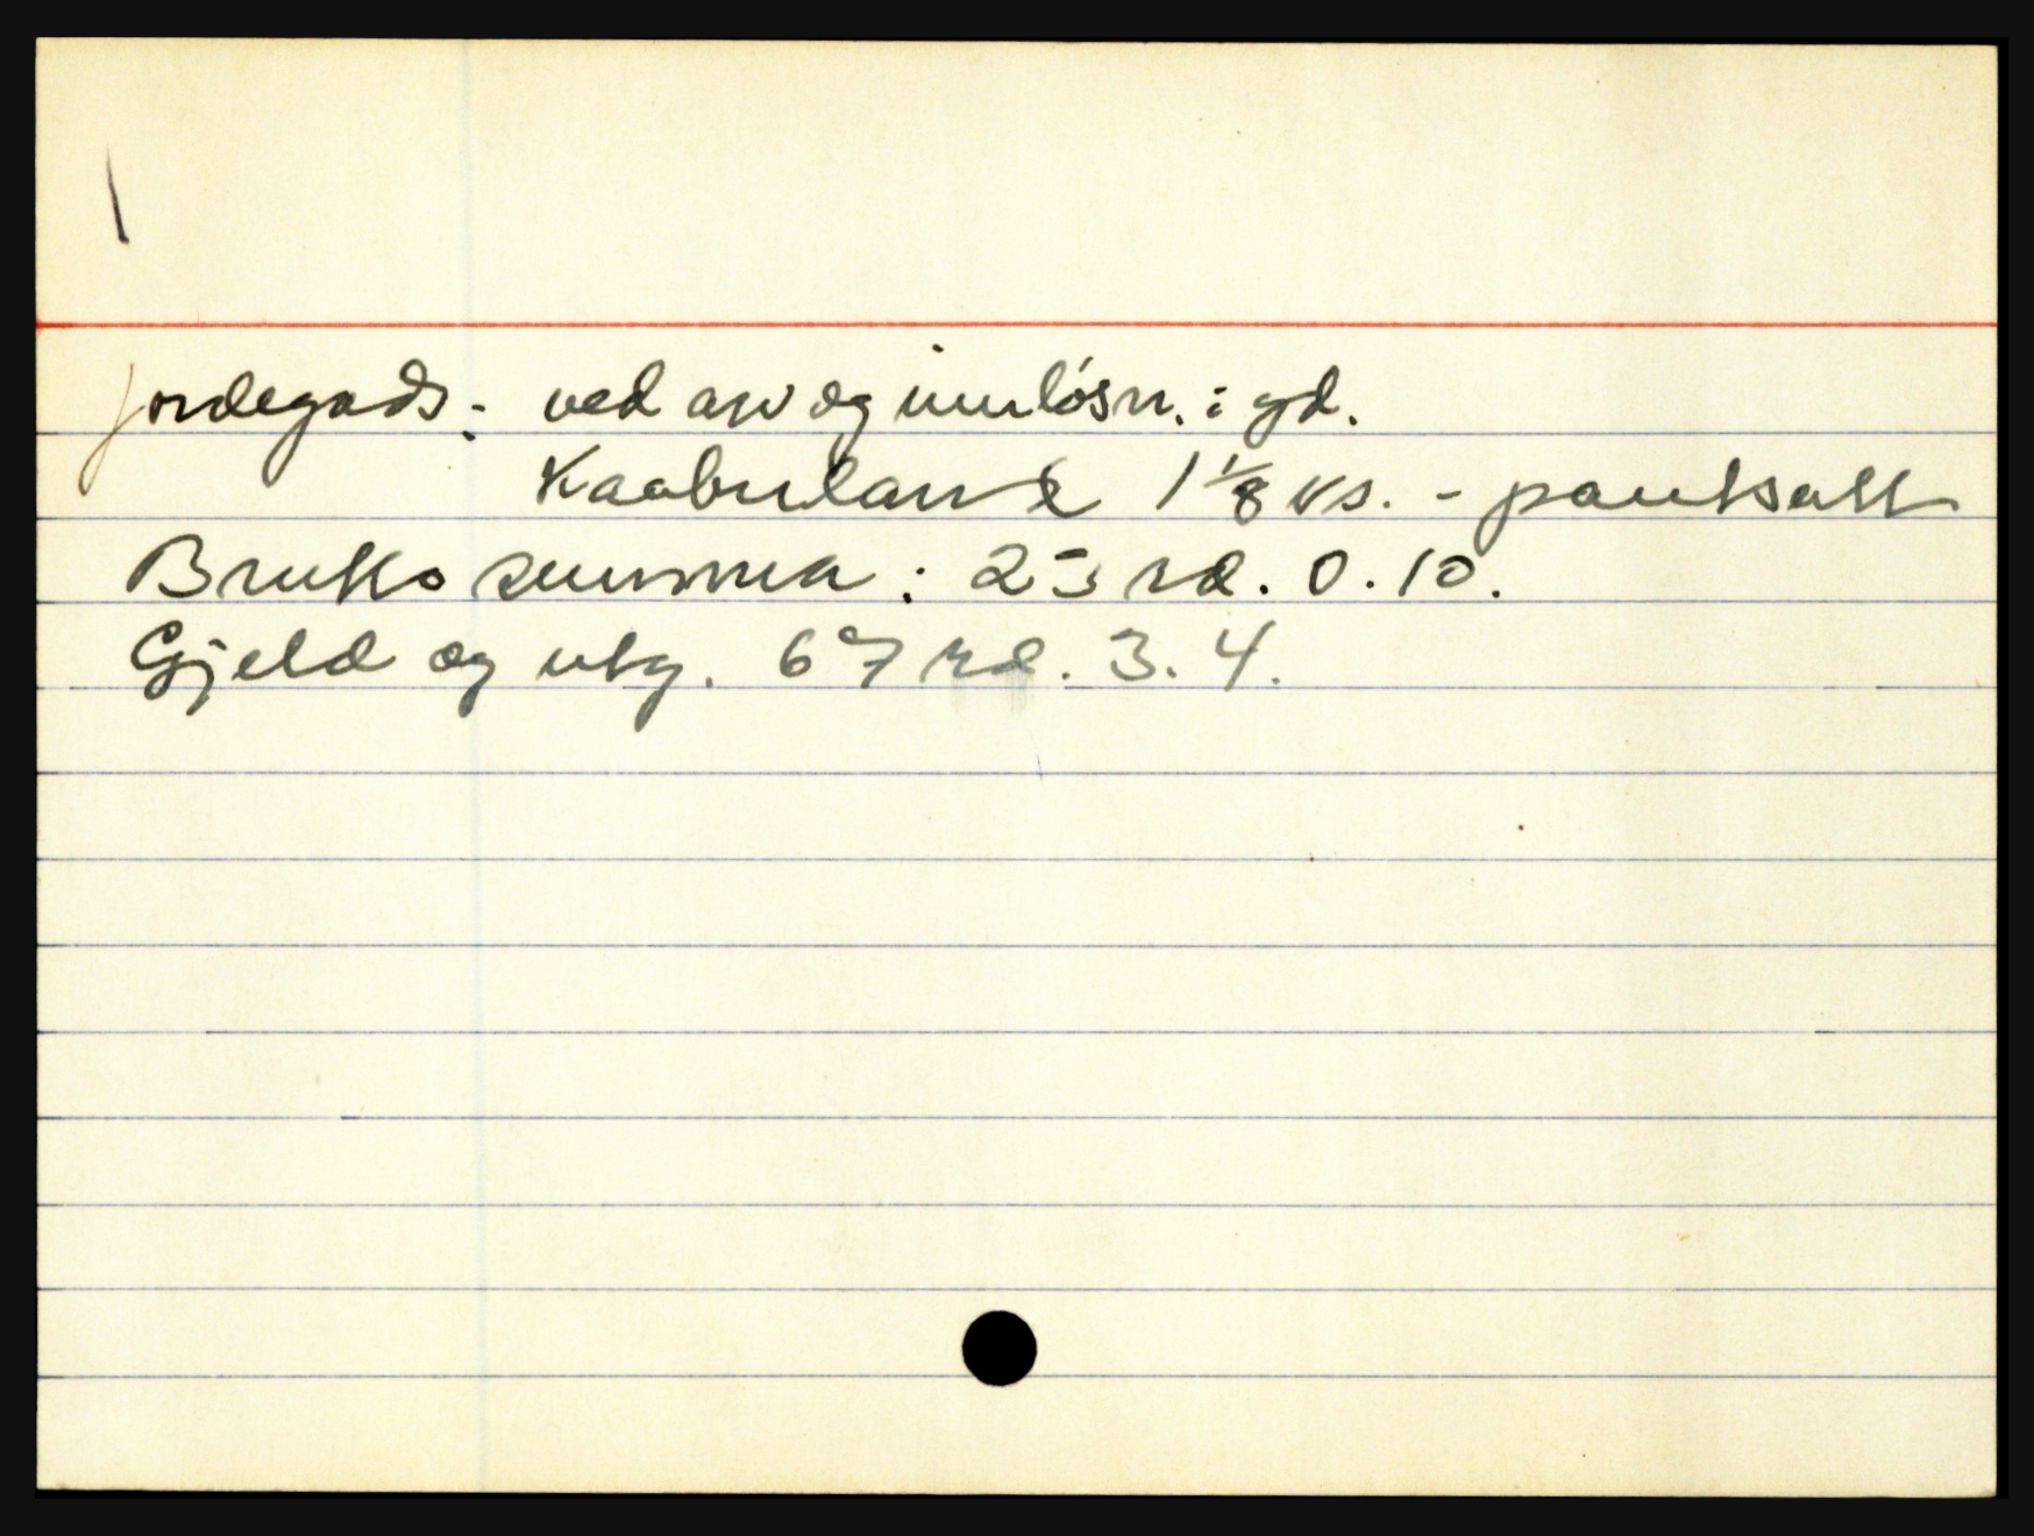 Jordegods: ved arv og innløsn. i gd.
Kaabuland 1 1/8 vs. - pantsatt
Brutto summa: 23 rd. 0. 10.
Gjeld og utg. 67 rd. 3. 4.